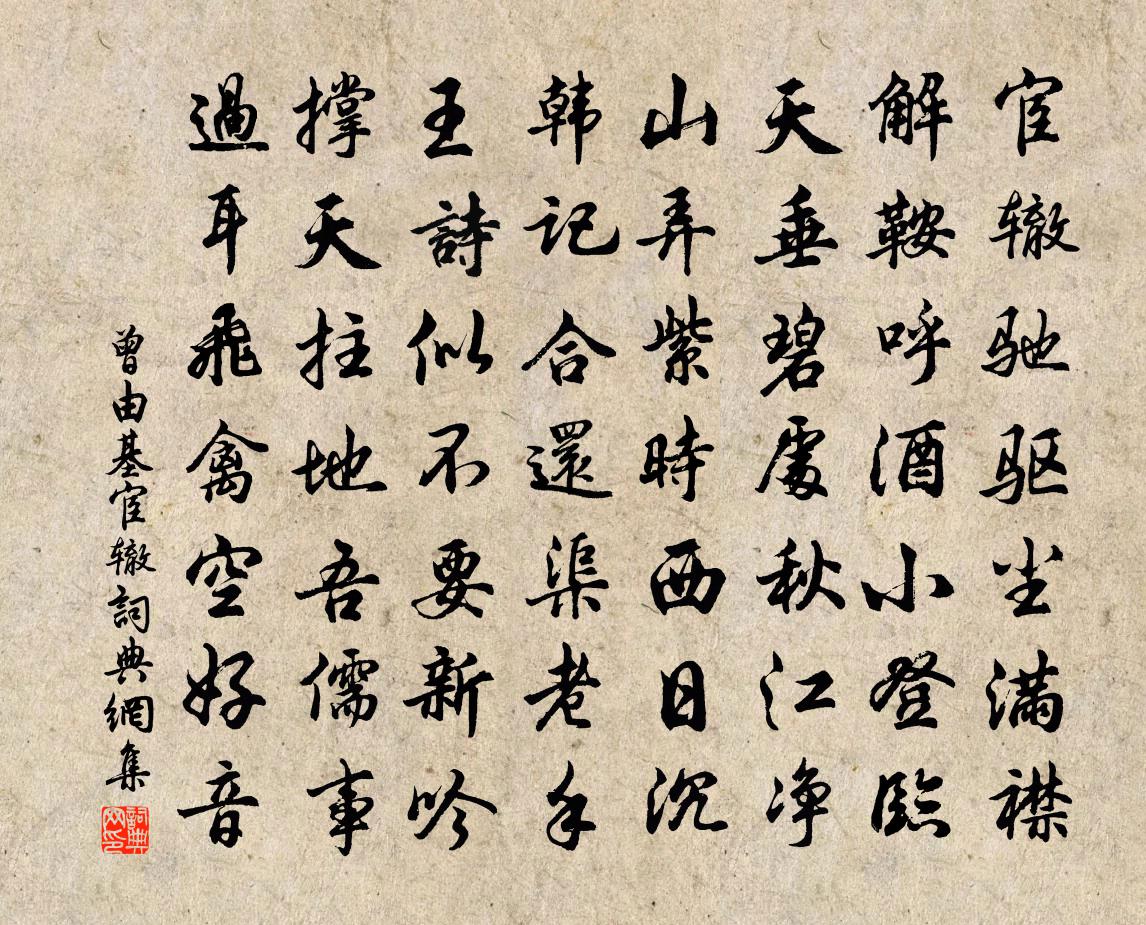 宦辙驰驱尘满襟
解鞍呼酒小登臨
天垂碧處秋江净
山弄紫時西日沉
韩記合還渠老手
王詩似不要新吟
撑天拄地吾儒事
過耳飛禽空好音
曾由基宦辙詞典網集
詞典网印